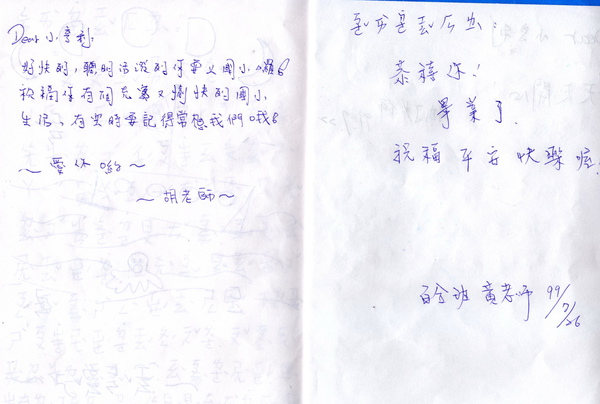 Dear 小亨利:
好快的,聰明活潑的你要上國小囉!
祝福你有個充實又愉快的國小
生活,有空時要記得常想我們哦!
～愛你喲～
～胡老師～
恭禧你!
畢業了.
祝福 平安 快樂喔!
百合班 黃老師 99/7/26